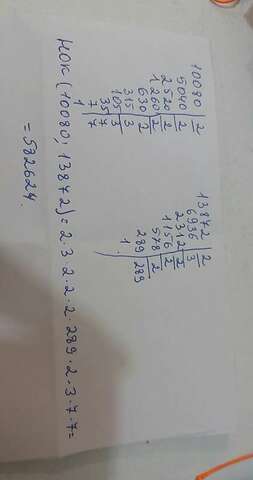 10080 | 2
5040 | 2
2520 | 2
1260 | 2
630 | 2
315 | 3
105 | 3
35 | 7
7 | 7
1
13872 | 2
6936 | 3
2312 | 2
1156 | 2
578 | 2
289 | 289
1
НОК (10080; 13872) = 2·3·2·2·2·289·2·3·7·7=
= 582624.